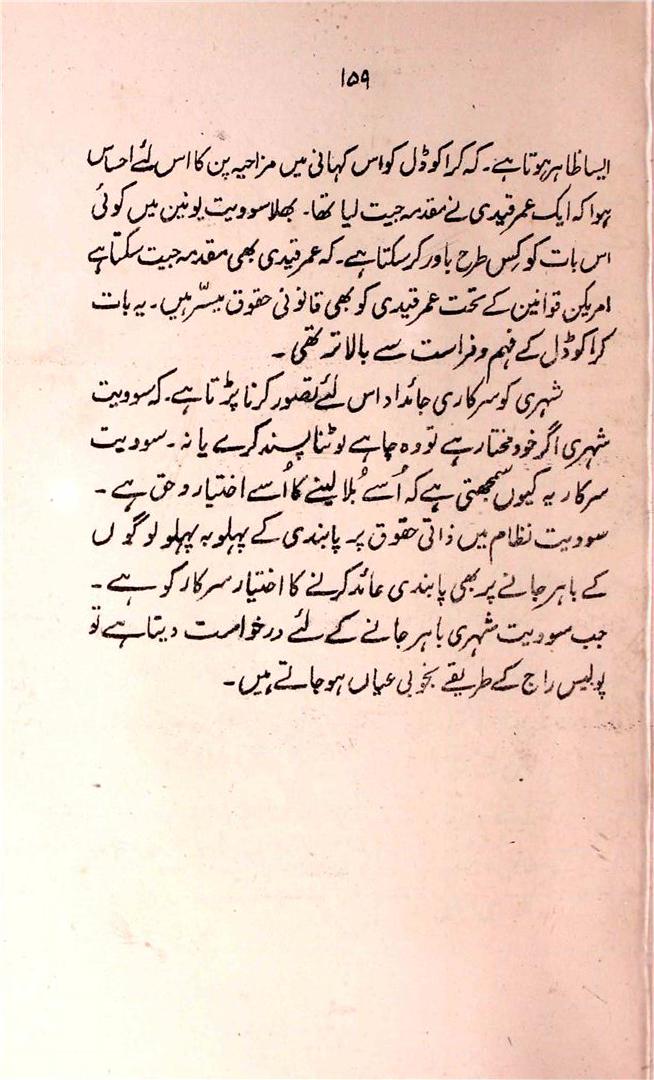 ۱۵۹
ایسا ظاہر ہوتا ہے۔ کہ کراکوڈل کو اس کہانی میں مزاحیہ پن کا اس لئے احساس
ہوا کہ ایک عمر قیدی نے مقدمہ جیت لیا تھا۔ بھلا سوویت یونین میں کوئی
اس بات کو کِس طرح باور کر سکتا ہے۔ کہ عمر قیدی بھی مقدمہ جیت سکتا ہے
امریکن قوانین کے تحت عمر قیدی کو بھی قانونی حقوق میسّر ہیں۔ یہ بات
کراکوڈل کے فہم و فراست سے بالا تر تھی۔
شہری کو سرکاری جائداد اس لئے تصور کرنا پڑتا ہے۔ کہ سوویت
شہری اگر خود مختار ہے تو وہ چاہے لوٹنا پسند کرے یا نہ۔ سوویت
سرکار یہ کیوں سمجھتی ہے کہ اُسے بُلا لینے کا اُسے اختیار و حق ہے۔
سوویت نظام میں ذاتی حقوق پر پابندی کے پہلو بہ پہلو لوگوں
کے باہر جانے پر بھی پابندی عائد کرنے کا اختیار سرکار کو ہے۔
جب سوویت شہری باہر جانے کے لئے درخواست دیتا ہے تو
پولیس راج کے طریقے بخوبی عیاں ہو جاتے ہیں۔